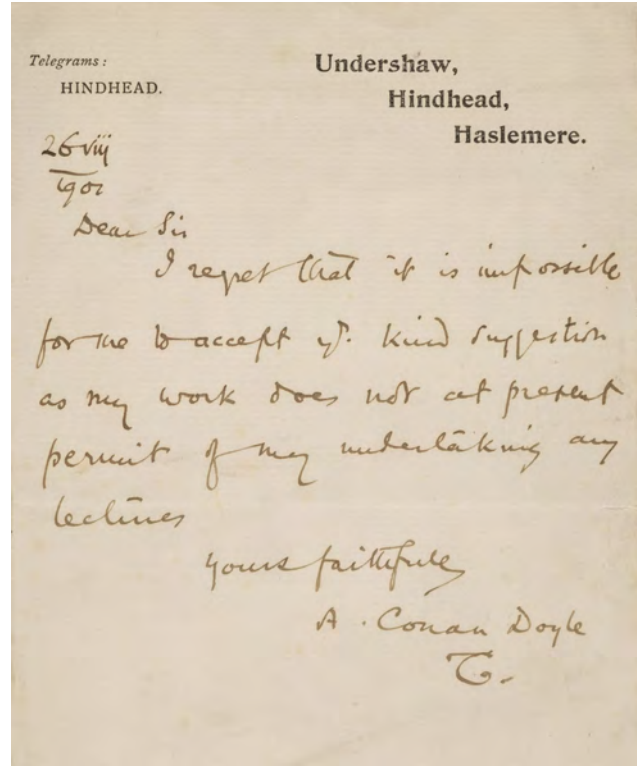 Telegrams:
HINDHEAD.
Undershaw,
Hindhead,
Haslemere.
26 viii
Dear Sir
I regret that it is impossible
for me to accept yr. kind suggestion
as my work does not at present
permit of my undertaking any
lectures
yours faithfully
A. Conan Doyle